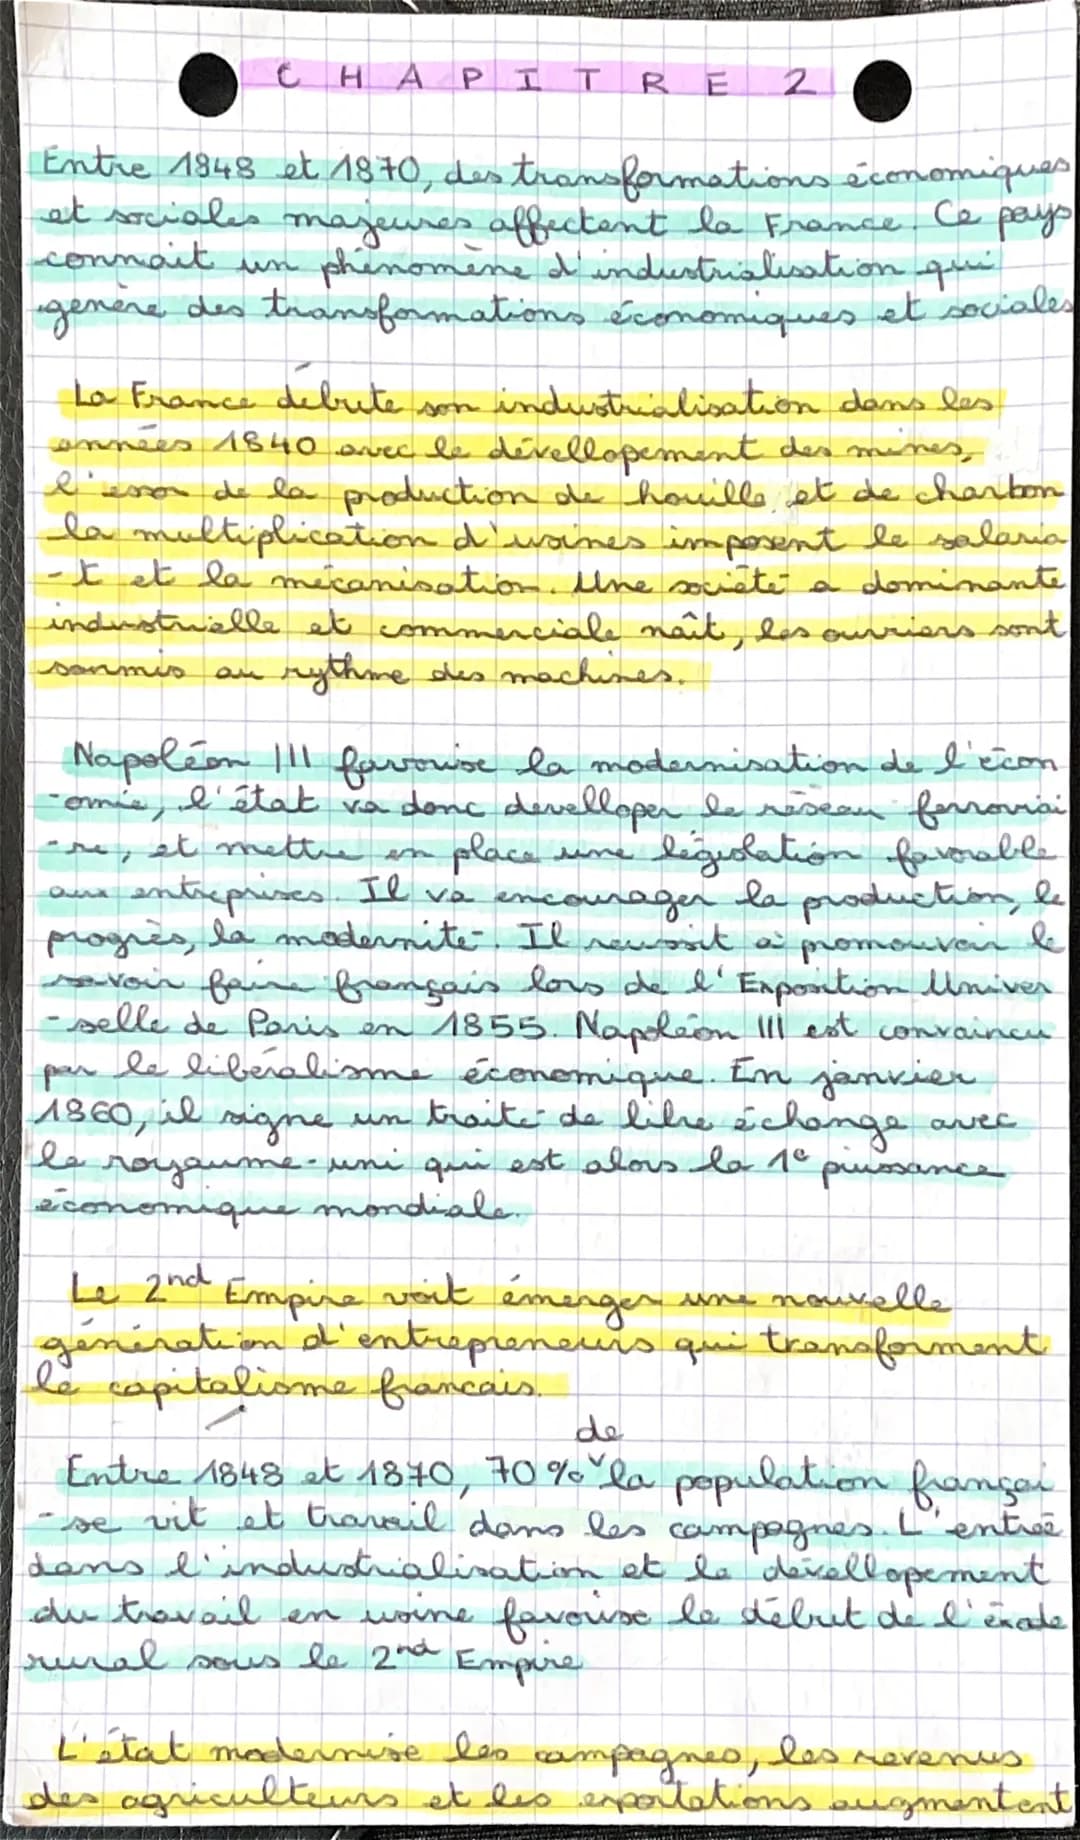 CHAPITRE 2
Entre 1848 et 1870, des transformations économiques
et sociales majeures affectent la France. Ce pays
connait un phénomène d'industrialisation qui
génère des transformations économiques et sociales
La France débute son industrialisation dans les
années 1840 avec le dévellopement des mines,
l'essor de la production de houille et de charbon
la multiplication d'usines imposent le salaria
-t et la mécanisation. Une société a dominante
industrielle et commerciale naît, les ouvriers sont
soumis au rythme des machines.
Napoléon III favorise la modernisation de l'écon
-omie, l'état va donc develloper le réseau ferroviai
-re, et mettre en place une législation favorable
aux entreprises. Il va encourager la production, le
progrès, la modernité. Il reussit à promouvoir le
savoir faire français lors de l'Exposition Univer
-selle de Paris en 1855. Napoléon III est convaincu
par le libéralisme économique. En janvier
1860, il signe un traité de libre échange avec
le royaume-uni qui est alors la 1e puissance
économique mondiale.
Le 2nd Empire voit émerger une nouvelle
génération d'entrepreneurs qui transforment
le capitalisme francais.
Entre 1848 et 1870, 70% de la population françai
-se vit et travail dans les campagnes. L'entrée
dans l'industrialisation et le dévellopement
du travail en usine favorise le début de l'éxode
rural sous le 2nd Empire
L'état modernise les campagnes, les revenus
des agriculteurs et les exportations augmentent